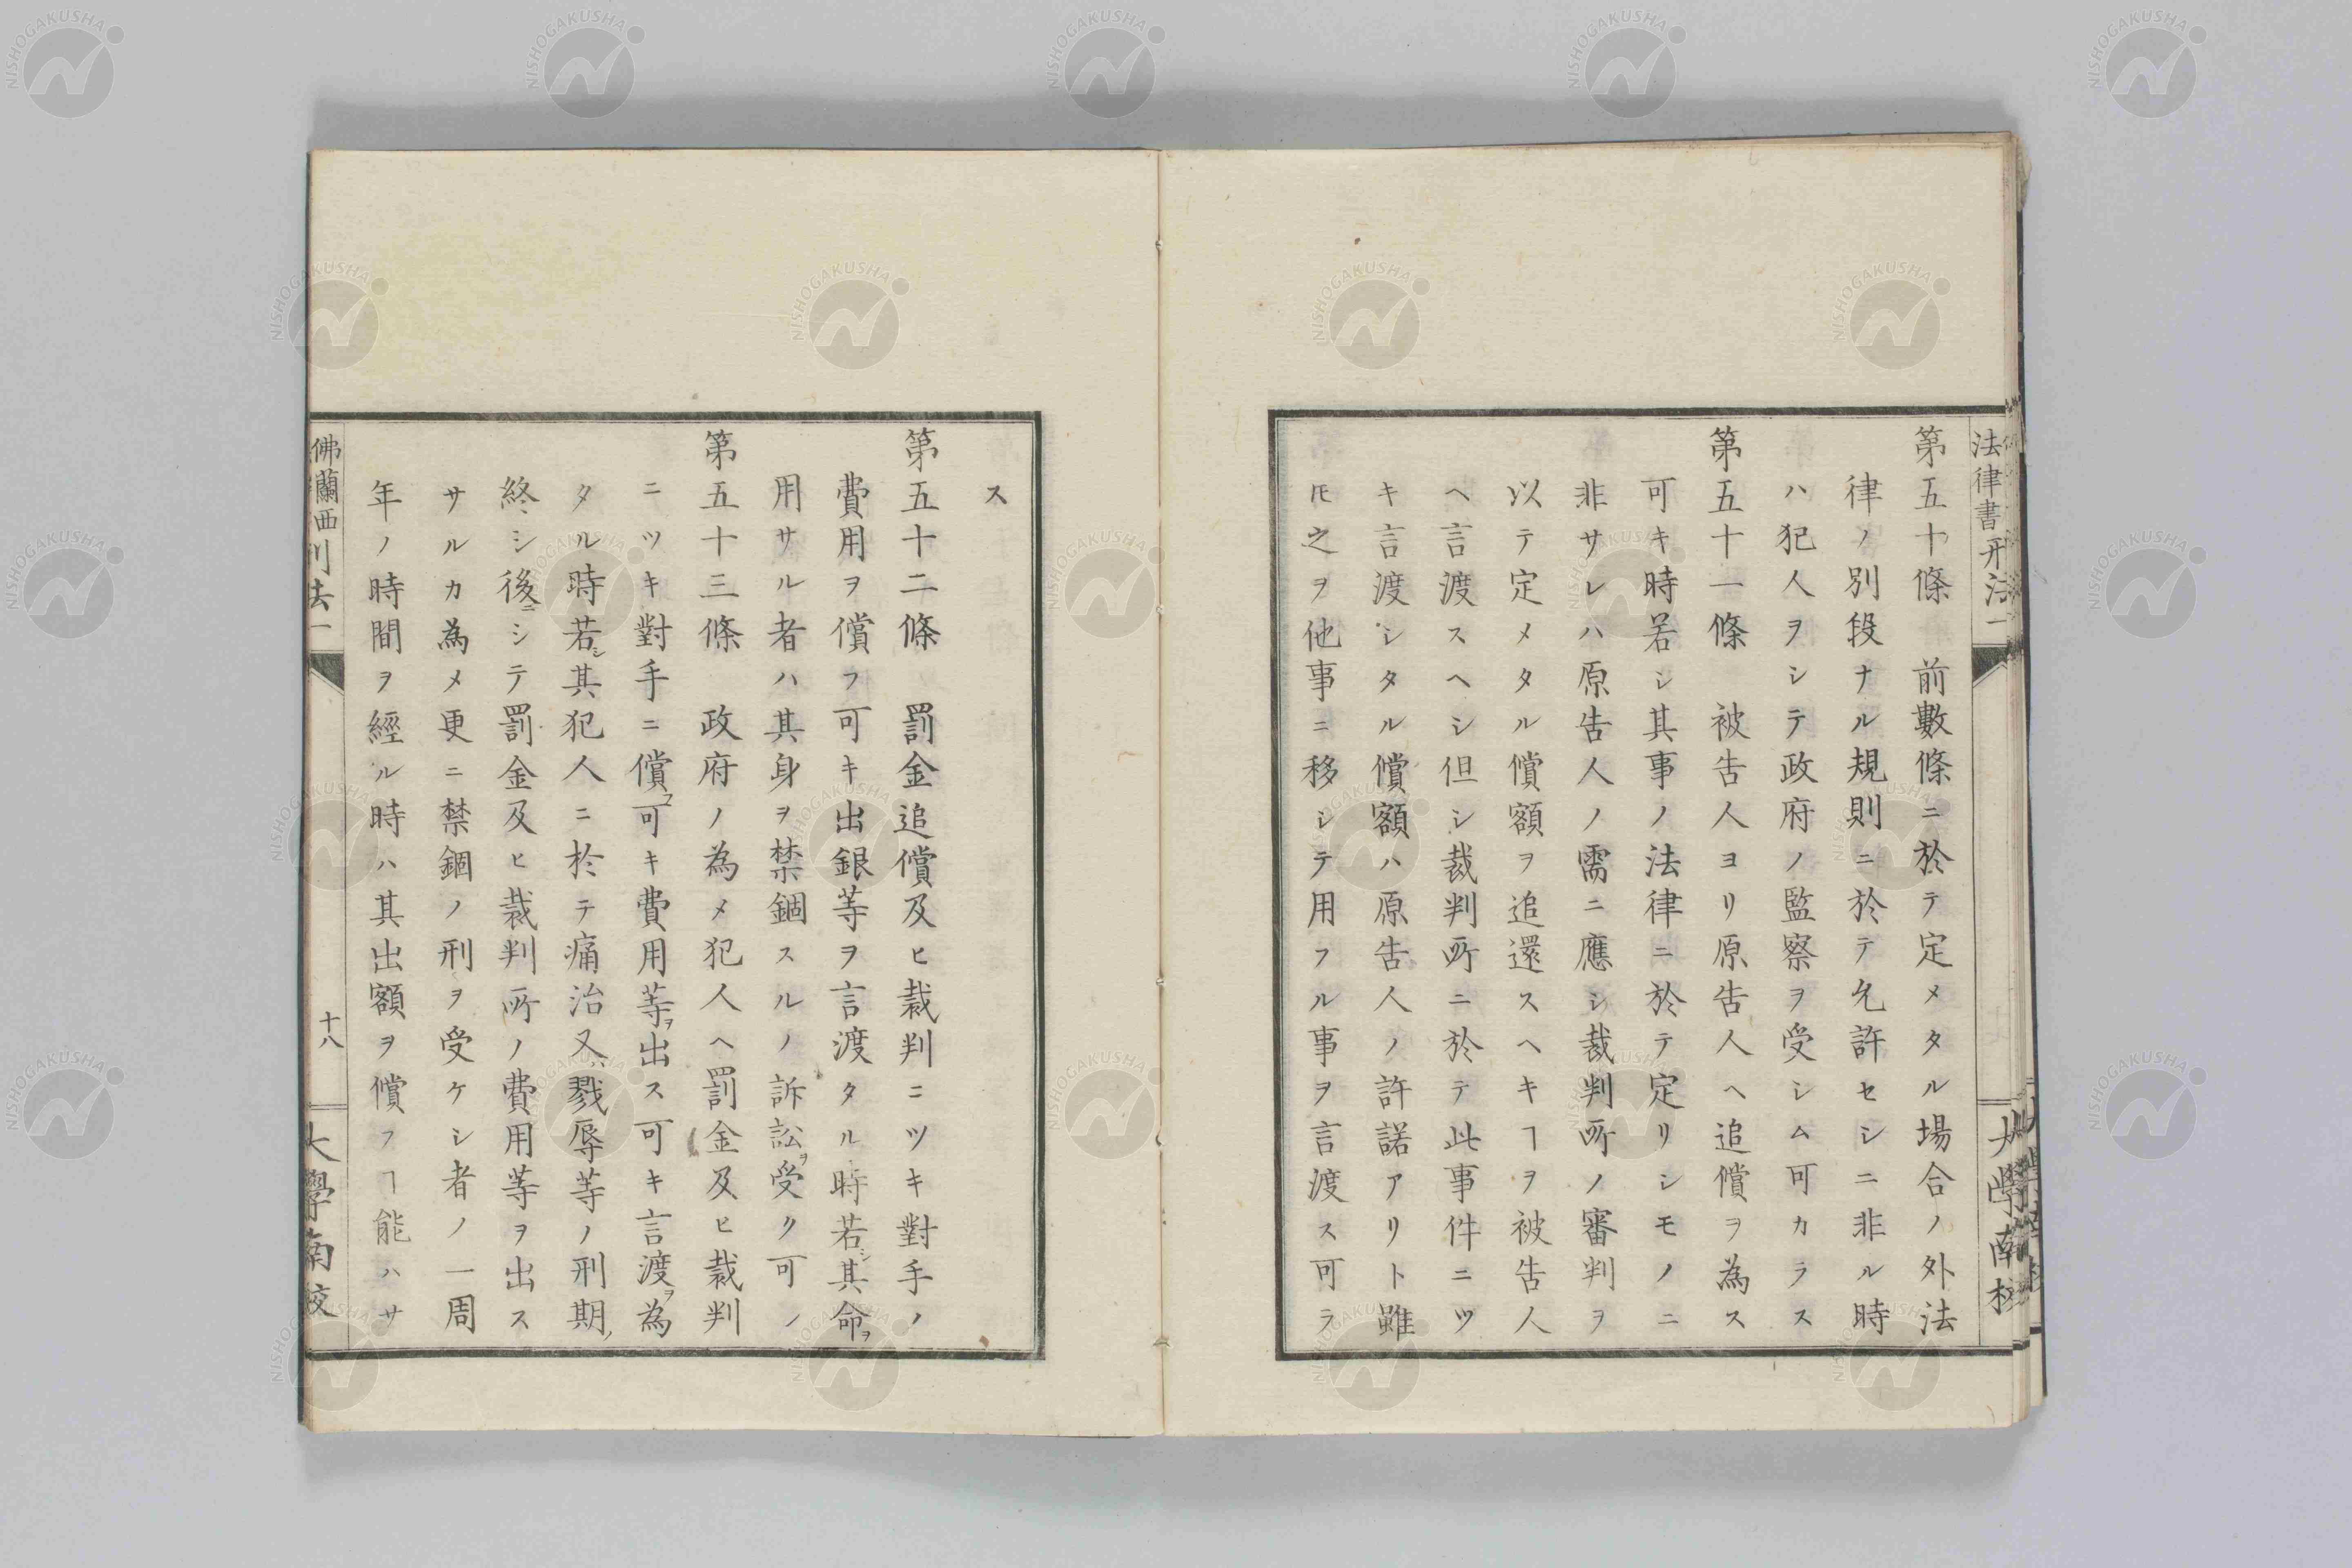 第五十條　前數條ニ於テ定メタル場合ノ外法
律ノ別段ナル規則ニ於テ允許セシニ非ル時
ハ犯人ヲシテ政府ノ監察ヲ受シム可カラス
第五十一條　被告人ヨリ原告人ヘ追償ヲ為ス
可キ時若シ其事ノ法律ニ於テ定リシモノニ
非サレハ原告人ノ需ニ應シ裁判所ノ審判ヲ
以テ定メタル償額ヲ追還スヘキヿヲ被告人
ヘ言渡スヘシ但シ裁判所ニ於テ此事件ニツ
キ言渡シタル償額ハ原告人ノ許諾アリト雖
𪜈之ヲ他事ニ移シテ用フル事ヲ言渡ス可ラ
ス
第五十二條　罰金追償及ヒ裁判ニツキ對手ノ
費用ヲ償フ可キ出銀等ヲ言渡タル時若シ其命ヲ
用サル者ハ其身ヲ禁錮スルノ訴訟ヲ受ク可シ
第五十三條　政府ノ為メ犯人ヘ罰金及ヒ裁判
ニツキ對手ニ償フ可キ費用等ヲ出ス可キ言渡ヲ為
タル時若シ其犯人ニ於テ痛治又ハ戮辱等ノ刑期ノ
終シ後ニシテ罰金及ヒ裁判所ノ費用等ヲ出ス
サルカ為メ更ニ禁錮ノ刑ヲ受ケシ者ノ一周
年ノ時間ヲ經ル時ハ其出額ヲ償フヿ能ハサ
佛蘭西刑法一
十八
大學南校
法律書刑法一
大學南校
NISHOGAKUSHA